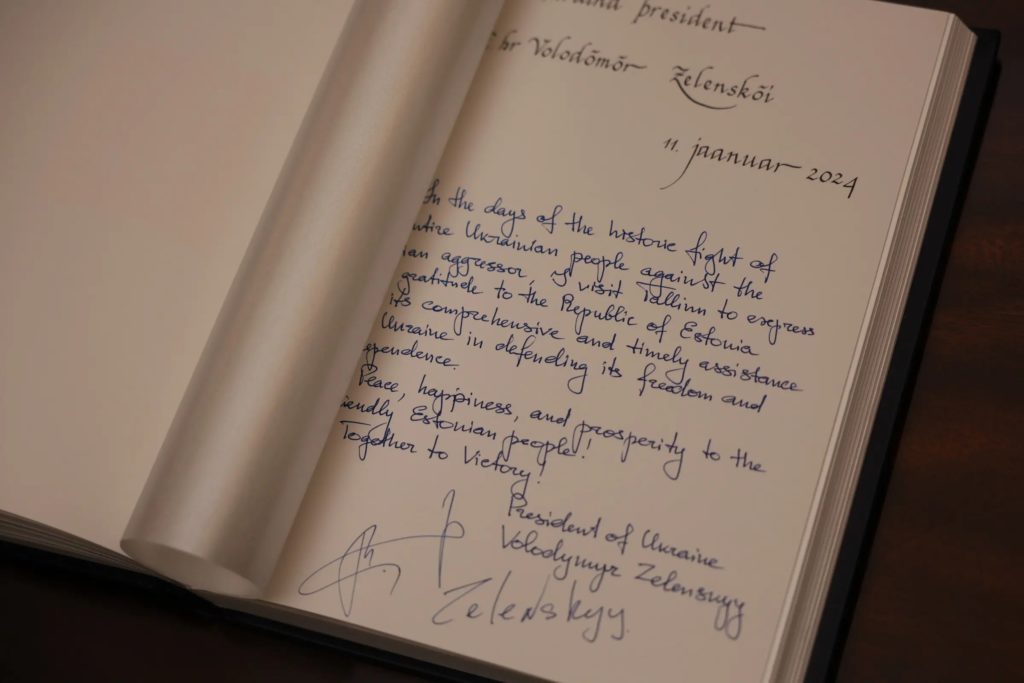 president
hr Volodõmõr Zelenskõi
11. jaanuar 2024
In the days of the historic fight of
ntire Ukrainian people against the
ian aggressor, I visit Tallinn to express
gratitude to the Republic of Estonia
its comprehensive and timely assistance
Ukraine in defending its freedom and
ependence.
Peace, happiness, and prosperity to the
iendly Estonian people!
Together to Victory!
President of Ukraine
Volodymyr Zelenskyy
Zelenskyy